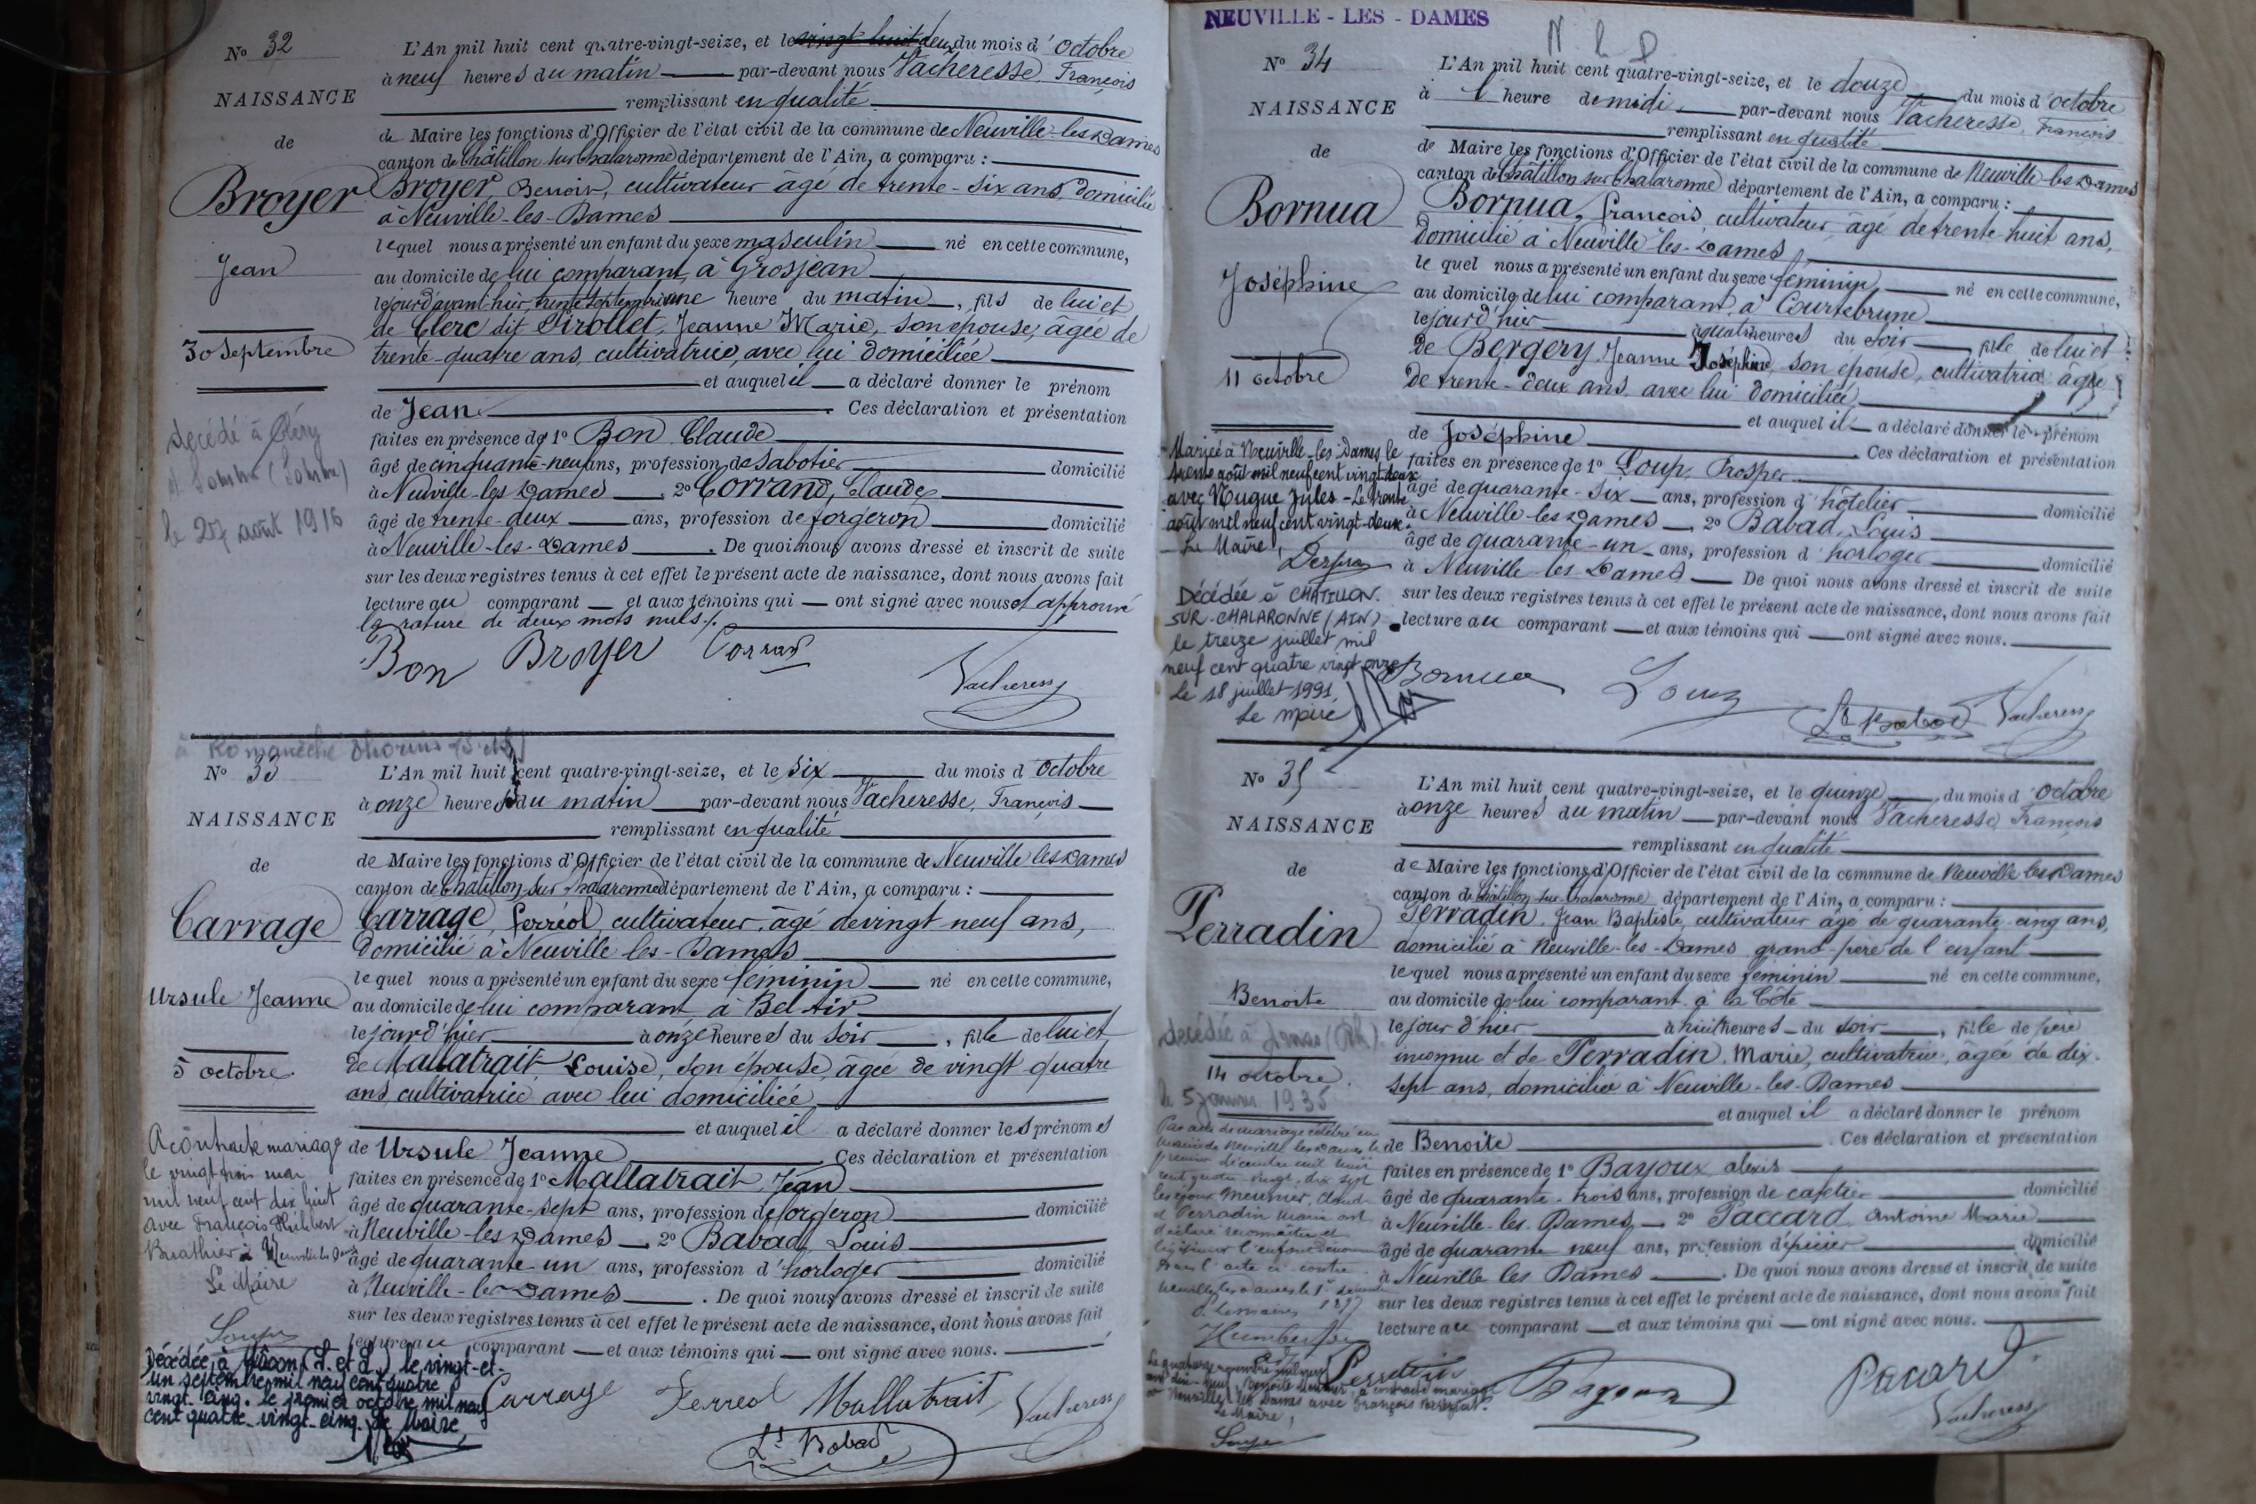 N° 32
NAISSANCE
de
Broyer
Jean
30 septembre
décédé à Cléry
s/ Somme (Somme)
le 27 août 1916
L'An mil huit cent quatre-vingt-seize, et le vingt huit deux du mois d'octobre
à neuf heures du matin par-devant nous Vacheresse François
remplissant en qualité
de Maire les fonctions d'Officier de l'état civil de la commune de Neuville-les-Dames
canton de Châtillon sur Chalaronne département de l'Ain, a comparu :
Broyer Benoît, cultivateur âgé de trente-six ans, domicilié
à Neuville-les-Dames
lequel nous a présenté un enfant du sexe masculin né en cette commune,
au domicile de lui comparant, à Grosjean
le jour d'avant-hier, trente septembre à une heure du matin, fils de lui et
de Clerc dit Pirollet, Jeanne Marie, son épouse, âgée de
trente-quatre ans, cultivatrice, avec lui domiciliée
et auquel il a déclaré donner le prénom
de Jean Ces déclaration et présentation
faites en présence de 1° Bon Claude
âgé de cinquante-neuf ans, profession de sabotier domicilié
à Neuville-les-Dames 2° Corrand, Claude
âgé de trente-deux ans, profession de forgeron domicilié
à Neuville-les-Dames. De quoi nous avons dressé et inscrit de suite
sur les deux registres tenus à cet effet le présent acte de naissance, dont nous avons fait
lecture au comparant et aux témoins qui ont signé avec nous et approuvé
la rature de deux mots nuls.
Bon Broyer Corrand
Vacheresse
à Romanèche Thorins (S et L)
N° 33
NAISSANCE
de
Carrage
Ursule Jeanne
5 octobre.
A contracté mariage
le vingt trois mai
mil neuf cent dix huit
avec François Philibert
Buathier à Neuville les Dames
Le Maire
Décédée à Mâcon (S. et L.) le vingt-et-
un septembre mil neuf cent quatre
vingt cinq. le premier octobre mil neuf
cent quatre-vingt cinq. Le Maire,
L'An mil huit cent quatre-vingt-seize, et le six du mois d'octobre
à onze heures du matin par-devant nous Vacheresse, François
remplissant en qualité
de Maire les fonctions d'Officier de l'état civil de la commune de Neuville les Dames
canton de Châtillon-sur-Chalaronne département de l'Ain, a comparu :
Carrage, Ferréol, cultivateur, âgé de vingt-neuf ans,
domicilié à Neuville-les-Dames
lequel nous a présenté un enfant du sexe féminin né en cette commune,
au domicile de lui comparant à Bel-Air
le jour d'hier à onze heures du soir, fille de lui et
de Mallatrait Louise, son épouse, âgée de vingt quatre
ans, cultivatrice avec lui domiciliée
et auquel il a déclaré donner les prénoms
de Ursule Jeanne Ces déclaration et présentation
faites en présence de 1° Mallatrait Jean
âgé de quarante-sept ans, profession de forgeron domicilié
à Neuville-les-Dames 2° Babad, Louis
âgé de quarante-un ans, profession d'horloger domicilié
à Neuville-les-Dames. De quoi nous avons dressé et inscrit de suite
sur les deux registres tenus à cet effet le présent acte de naissance, dont nous avons fait
lecture au comparant et aux témoins qui ont signé avec nous.
Carrage Ferreol Mallatrait Vacheresse
Ls Babad
NEUVILLE - LES - DAMES
N L D
N° 34
NAISSANCE
de
Bornua
Joséphine
11 octobre
Mariée à Neuville-les-Dames le
trente août mil neuf cent vingt-deux
avec Nugue Jules - Le trente
août mil neuf cent vingt-deux.
Le Maire,
Décédée à CHATILLON-
SUR-CHALARONNE (AIN)
le treize juillet mil
neuf cent quatre vingt onze
Le 18 juillet 1991,
Le Maire
L'An mil huit cent quatre-vingt-seize, et le douze du mois d'octobre
à 1 heure de midi, par-devant nous Vacheresse, François
remplissant en qualité
de Maire les fonctions d'Officier de l'état civil de la commune de Neuville-les-Dames
canton de Châtillon sur Chalaronne département de l'Ain, a comparu :
Bornua, François, cultivateur, âgé de trente-huit ans,
domicilié à Neuville-les-Dames
lequel nous a présenté un enfant du sexe féminin né en cette commune,
au domicile de lui comparant, à Courtebrune
le jour d'hier à quatre heures du soir, fille de lui et
de Bergery Jeanne Joséphine, son épouse, cultivatrice âgée
de trente-deux ans, avec lui domiciliée
et auquel il a déclaré donner le prénom
de Joséphine Ces déclaration et présentation
faites en présence de 1° Loup, Prosper
âgé de quarante-six ans, profession d'hôtelier domicilié
à Neuville-les-Dames 2° Babad, Louis
âgé de quarante-un ans, profession d'horloger domicilié
à Neuville-les-Dames De quoi nous avons dressé et inscrit de suite
sur les deux registres tenus à cet effet le présent acte de naissance, dont nous avons fait
lecture au comparant et aux témoins qui ont signé avec nous.
Bornua Loup Ls Babad Vacheresse
N° 35
NAISSANCE
de
Perradin
Benoite
décédée à Arnas (Rh)
14 octobre.
le 5 janvier 1935
Par acte de mariage célébré en
mairie de Neuville les Dames le
premier décembre mil huit
cent quatre-vingt dix sept
les époux Meunier, Claude
et Perradin Marie ont
déclaré reconnaître et
légitimer l'enfant dénommé
dans l'acte ci contre
Neuville les Dames le 1er décembre
1897
Le quatorze novembre mil neuf
cent dix-neuf, Benoite Meunier, a contracté mariage
à Neuville les Dames avec François
Le Maire,
L'An mil huit cent quatre-vingt-seize, et le quinze du mois d'octobre
à onze heures du matin par-devant nous Vacheresse François
remplissant en qualité
de Maire les fonctions d'Officier de l'état civil de la commune de Neuville les Dames
canton de Châtillon-sur-Chalaronne département de l'Ain, a comparu :
Perradin, Jean Baptiste, cultivateur âgé de quarante-cinq ans,
domicilié à Neuville-les-Dames grand-père de l'enfant
lequel nous a présenté un enfant du sexe féminin né en cette commune,
au domicile de lui comparant à la Côte
le jour d'hier à huit heures du soir, fille de père
inconnu et de Perradin, Marie, cultivatrice, âgée de dix-
sept ans, domiciliée à Neuville-les-Dames
et auquel il a déclaré donner le prénom
de Benoite Ces déclaration et présentation
faites en présence de 1° Bayoux alexis
âgé de quarante-trois ans, profession de cafetier domicilié
à Neuville-les-Dames 2° Paccard Antoine Marie
âgé de quarante neuf ans, profession d'épicier domicilié
à Neuville les Dames. De quoi nous avons dressé et inscrit de suite
sur les deux registres tenus à cet effet le présent acte de naissance, dont nous avons fait
lecture au comparant et aux témoins qui ont signé avec nous.
Perradin Bayoux Pacard
Vacheresse